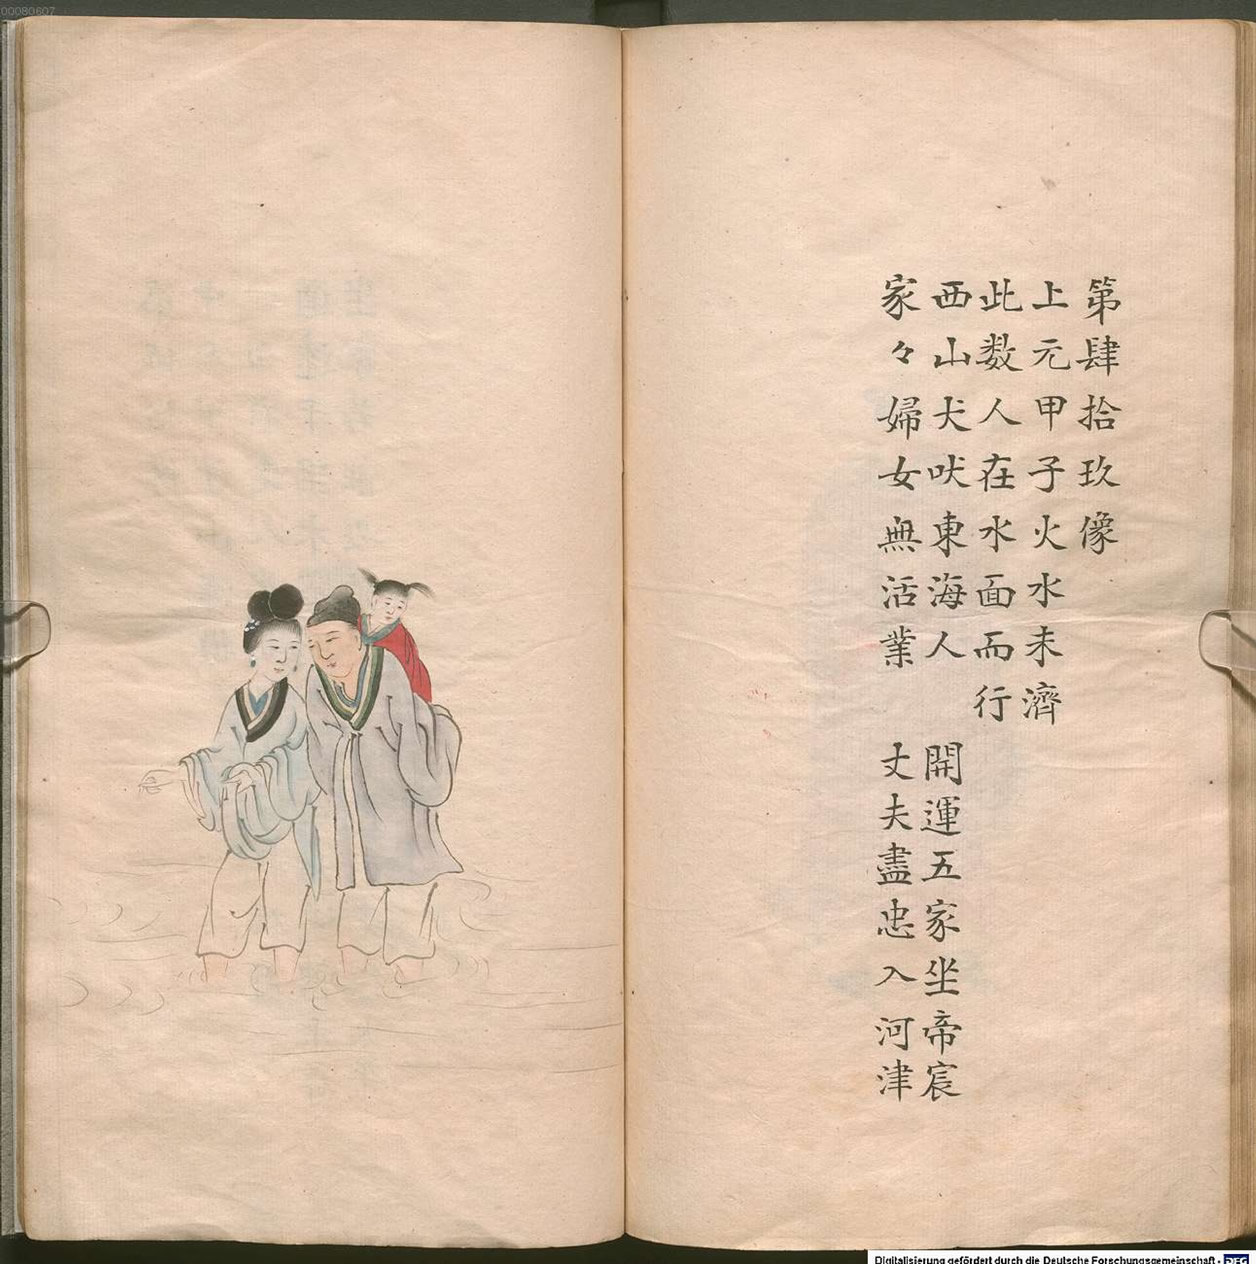 00080607
第肆拾玖像
上元甲子火水未濟
此数人在水面而行
西山犬吠東海人 開運五家坐帝宸
家々婦女無活業 丈夫盡忠入河津
Digitalisierung gefördert durch die Deutsche Forschungsgemeinschaft - DFG